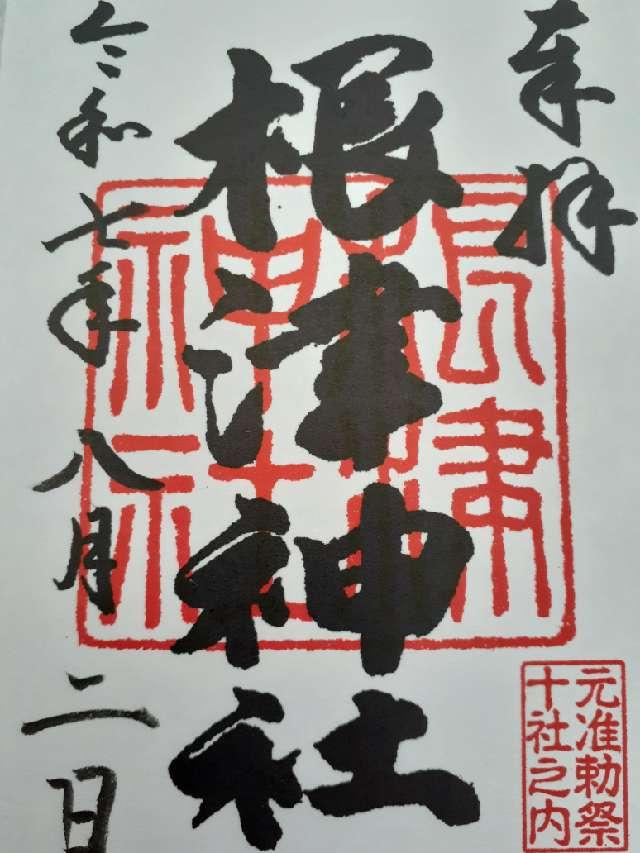 奉拝
根津神社
令和七年八月二日
根津神社
元准勅祭
十社之内